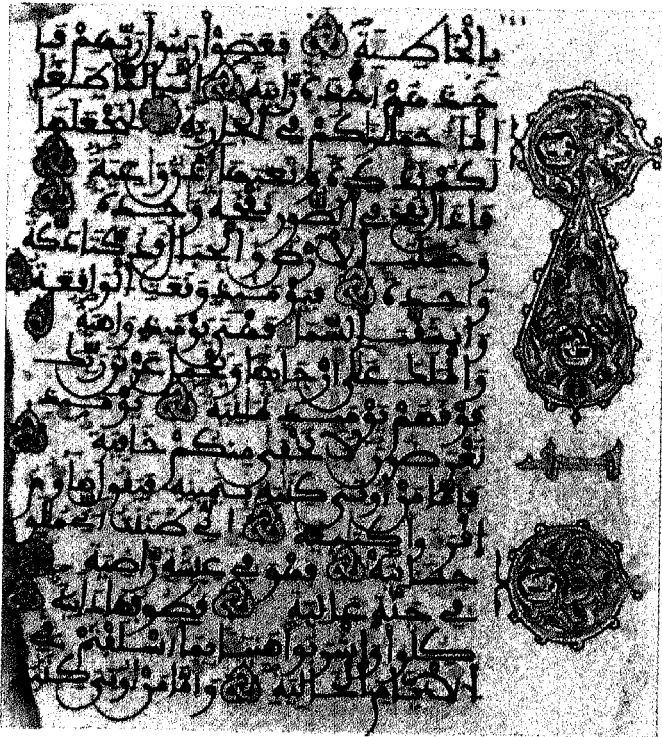 بالخاطية فعصوا رسول ربهم فأ
خذهم أخذة رابية إنا لما طغا
الما حملناكم في الجارية لنجعلها
لكم تذكرة وتعيها أذن واعية
فإذا نفخ في الصور نفخة واحدة
وحملت الأرض والجبال فدكتا دكة
واحدة فيومئذ وقعت الواقعة
وانشقت السما فهي يومئذ واهية
والملك على أرجائها ويحمل عرش ربك
فوقهم يومئذ ثمنية يومئذ
تعرضون لا تخفى منكم خافية
فأما من أوتي كتبه بيمينه فيقول هاؤم
اقرءوا كتبيه إني ظننت أني ملق
حسابيه فهو في عيشة راضية
في جنة عالية قطوفها دانية
كلوا واشربوا هنيا بما أسلفتم في
الأيام الخالية وأما من أوتي كتبه